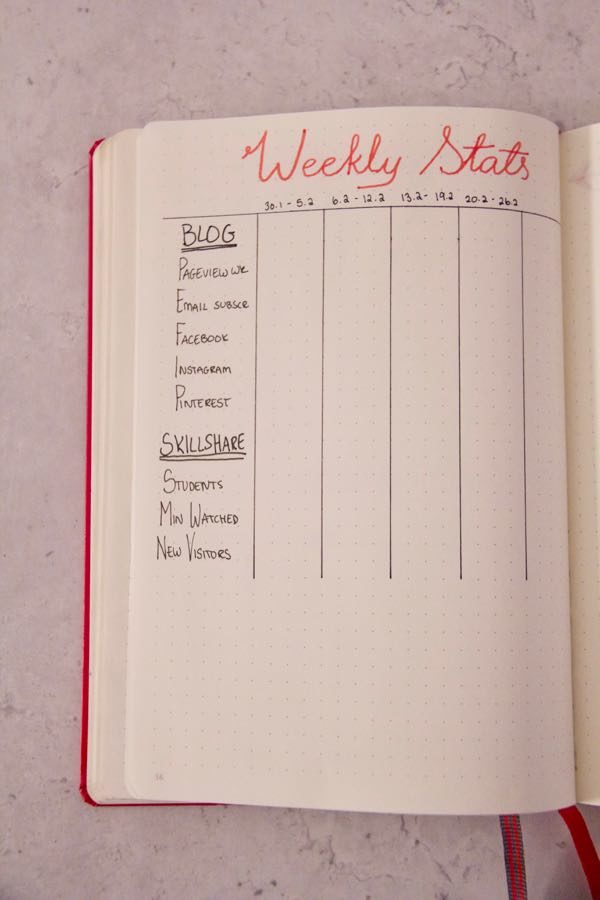 Weekly Stats
30.1 - 5.2 6.2 - 12.2 13.2 - 19.2 20.2 - 26.2
BLOG
PAGEVIEW WK
EMAIL SUBSCR
FACEBOOK
INSTAGRAM
PINTEREST
SKILLSHARE
STUDENTS
MIN WATCHED
NEW VISITORS